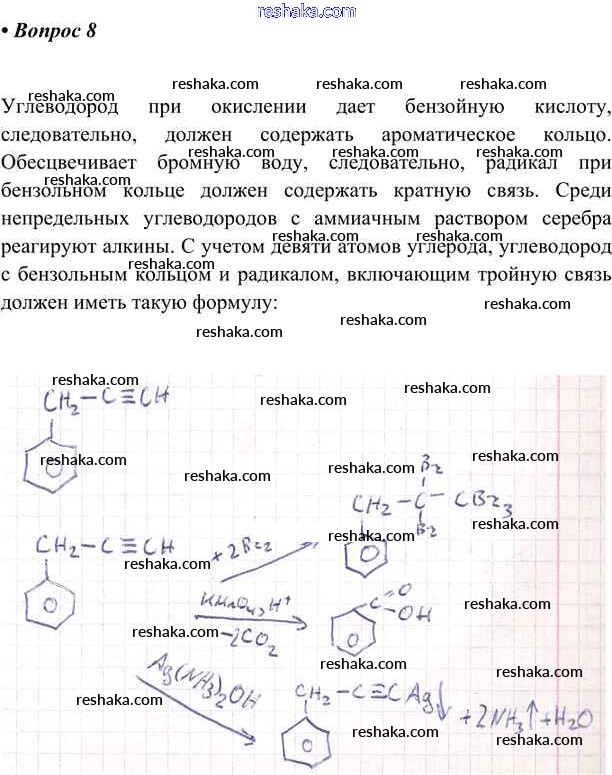 www.reshaka.com
• Вопрос 8
reshaka.com reshaka.com reshaka.com reshaka.com
Углеводород при окислении дает бензойную кислоту,
следовательно, должен содержать ароматическое кольцо.
reshaka.com reshaka.com reshaka.com
Обесцвечивает бромную воду, следовательно, радикал при
reshaka.com
бензольном кольце должен содержать кратную связь. Среди
reshaka.com reshaka.com reshaka.com
непредельных углеводородов с аммиачным раствором серебра
реагируют алкины. С учетом девяти атомов углерода, углеводород
reshaka.com reshaka.com reshaka.com
с бензольным кольцом и радикалом, включающим тройную связь
должен иметь такую формулу:
reshaka.com reshaka.com reshaka.com
reshaka.com
CH2–C≡CH
reshaka.com reshaka.com
reshaka.com reshaka.com reshaka.com
Br
CH2–C–CBr3
Br
CH2–C≡CH +2Br2
reshaka.com reshaka.com
KMnO4, H+
–2CO2
C=O
OH
reshaka.com reshaka.com reshaka.com
reshaka.com reshaka.com
Ag(NH3)2OH
CH2–C≡CAg↓ +2NH3↑+H2O
reshaka.com reshaka.com reshaka.com
reshaka.com